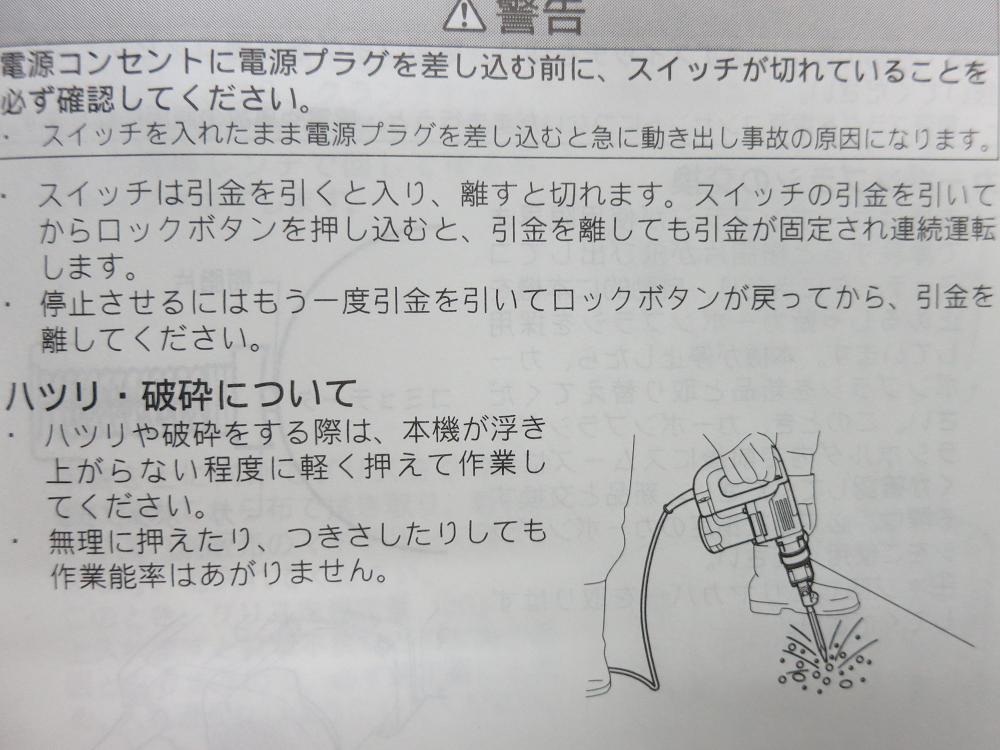 ⚠警告
電源コンセントに電源プラグを差し込む前に、スイッチが切れていることを
必ず確認してください。
・ スイッチを入れたまま電源プラグを差し込むと急に動き出し事故の原因になります。
・ スイッチは引金を引くと入り、離すと切れます。スイッチの引金を引いて
からロックボタンを押し込むと、引金を離しても引金が固定され連続運転
します。
・ 停止させるにはもう一度引金を引いてロックボタンが戻ってから、引金を
離してください。
ハツリ・破砕について
・ ハツリや破砕をする際は、本機が浮き
上がらない程度に軽く押えて作業し
てください。
・ 無理に押えたり、つきさしたりしても
作業能率はあがりません。